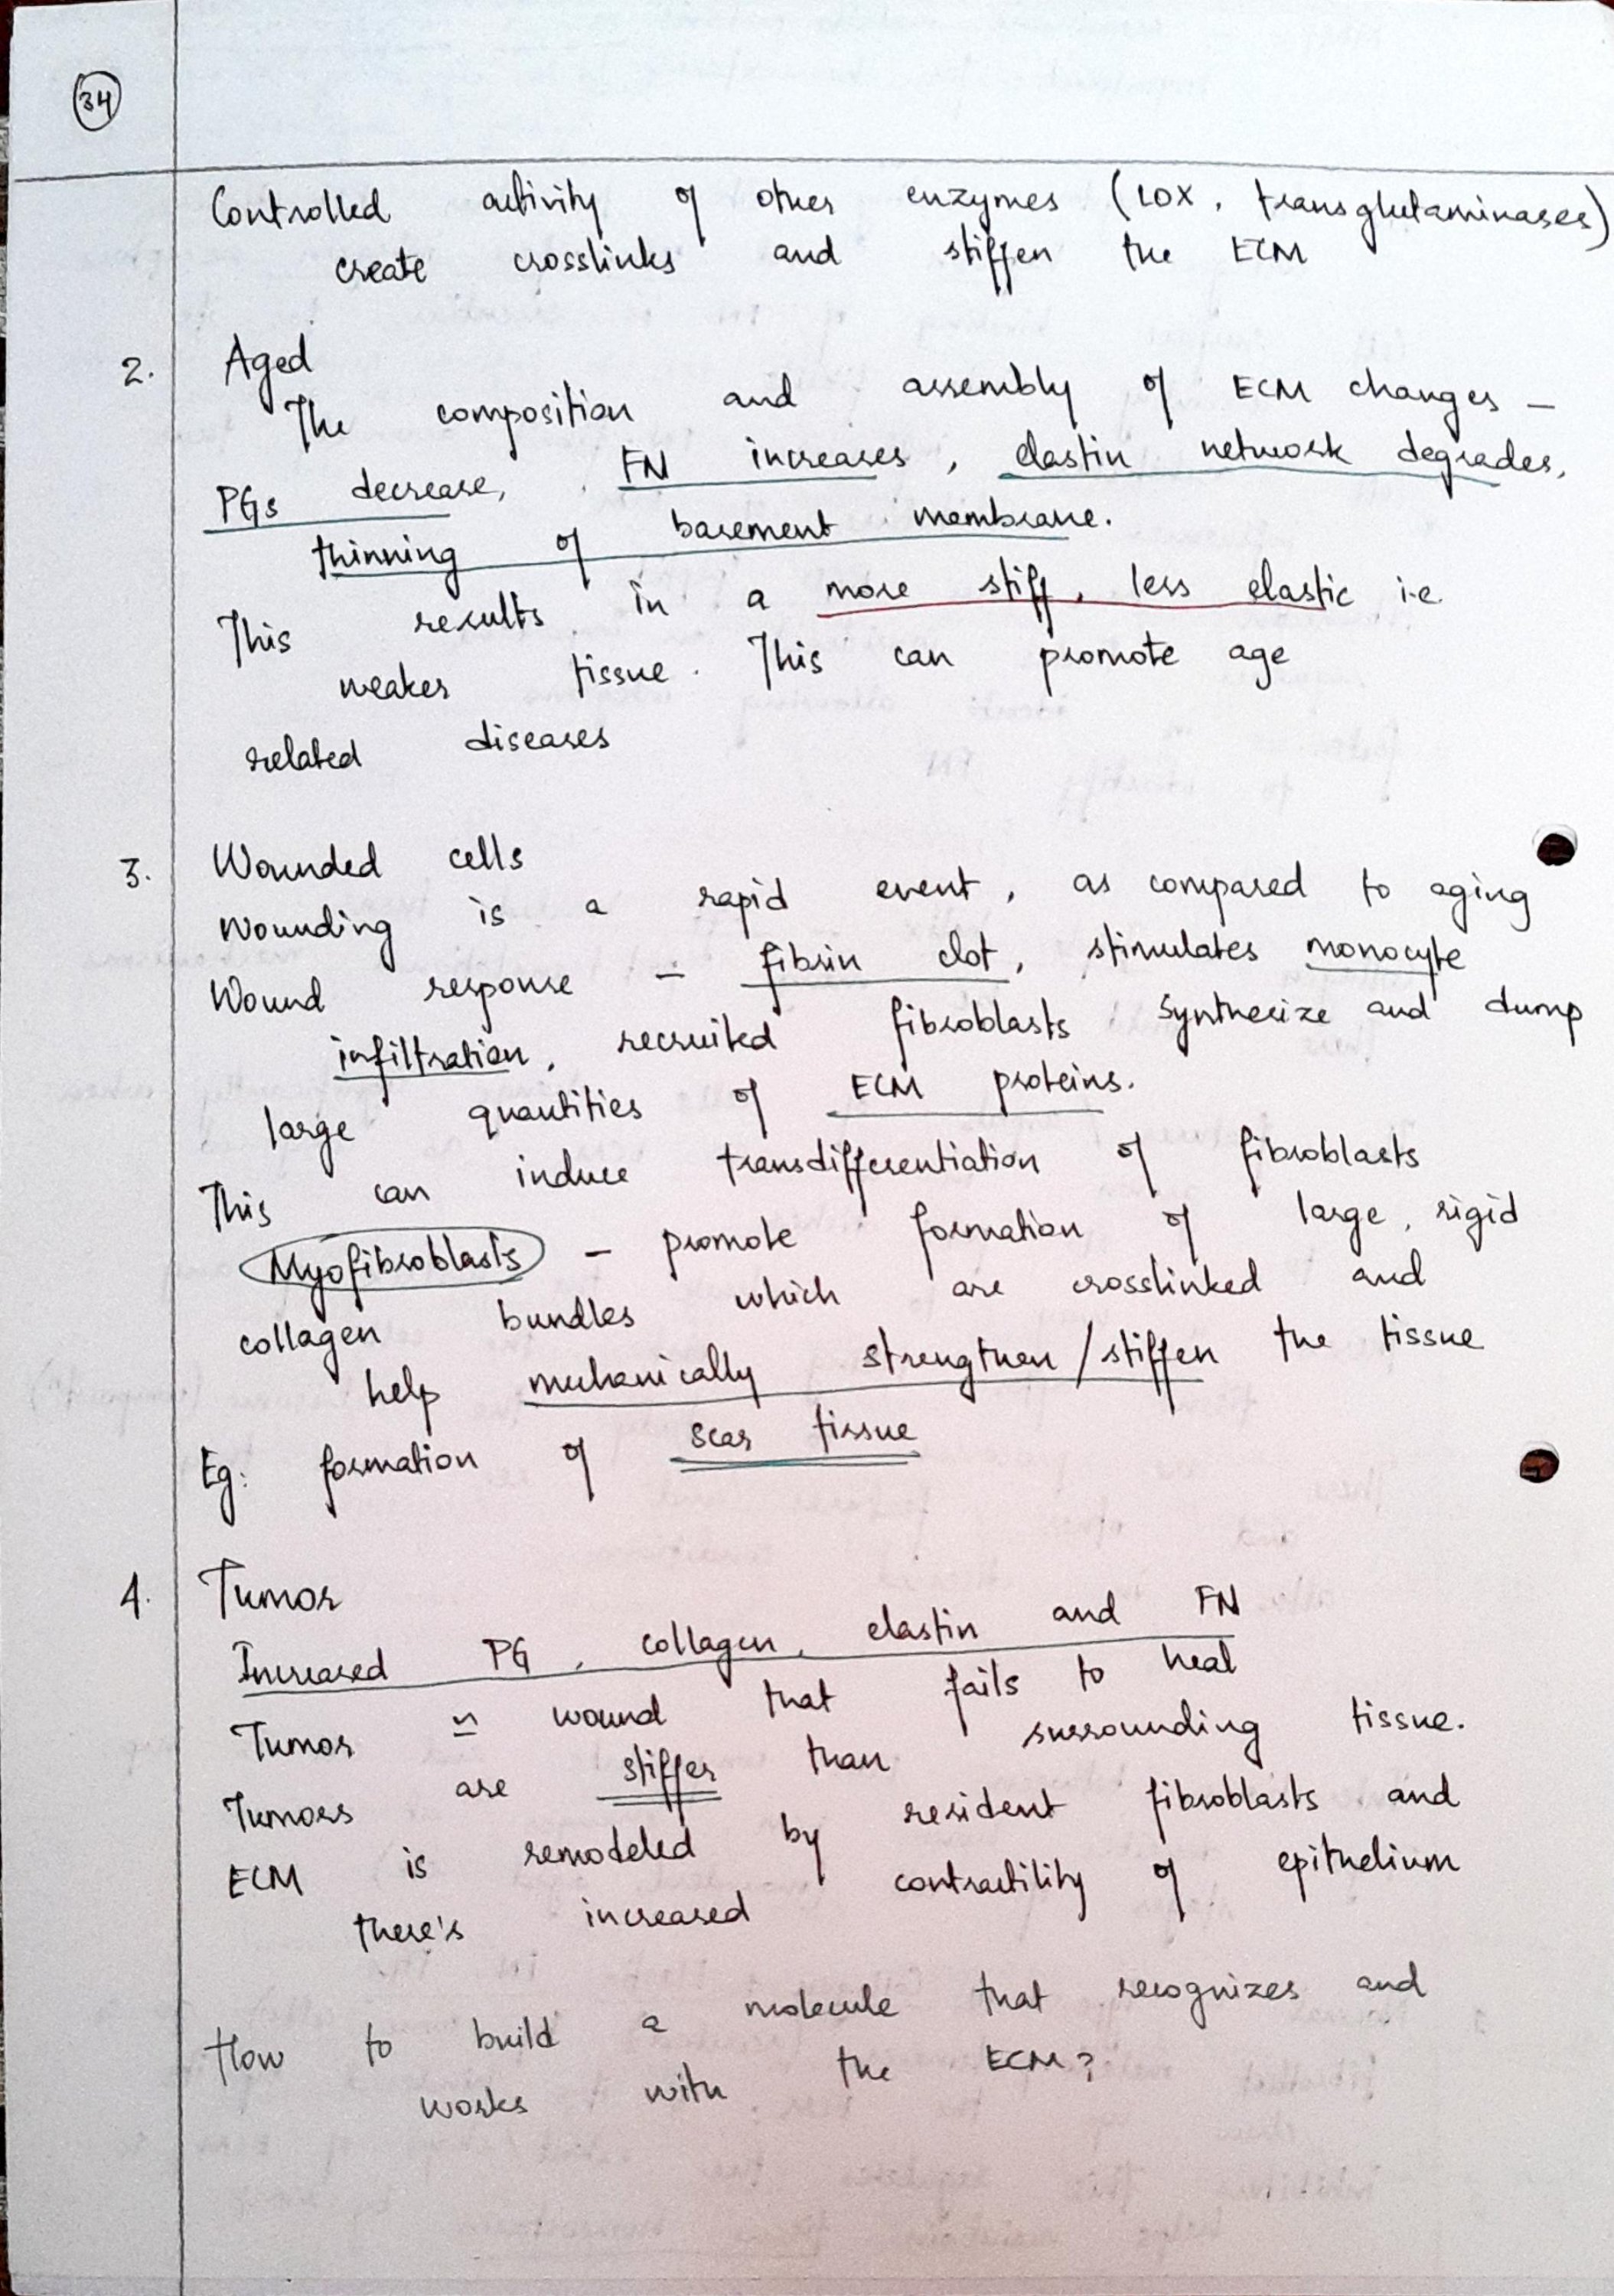 34
Controlled activity of other enzymes (LOX, transglutaminases)
create crosslinks and stiffen the ECM
2. Aged
The composition and assembly of ECM changes –
PGs decrease, FN increases, elastin network degrades,
thinning of basement membrane.
This results in a more stiff, less elastic i.e.
weaker tissue. This can promote age
related diseases
3. Wounded cells
Wounding is a rapid event, as compared to aging
Wound response – fibrin clot, stimulates monocyte
infiltration, recruited fibroblasts synthesize and dump
large quantities of ECM proteins.
This can induce transdifferentiation of fibroblasts
Myofibroblasts – promote formation of large, rigid
collagen bundles which are crosslinked and
help mechanically strengthen/stiffen the tissue
Eg: formation of scar tissue
4. Tumor
Increased PG, collagen, elastin and FN
Tumor ≃ wound that fails to heal
Tumors are stiffer than surrounding tissue.
ECM is remodeled by resident fibroblasts and
there's increased contractility of epithelium
How to build a molecule that recognizes and
works with the ECM?